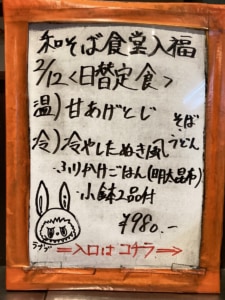 和そば食堂入福
2/12<日替定食>
温)甘あげとじ
そば
うどん
冷)冷やしたぬき風
ふりかけごはん(明太昆布)
小鉢2品付
¥980.-
ラブブ
=入口はコチラ⇒